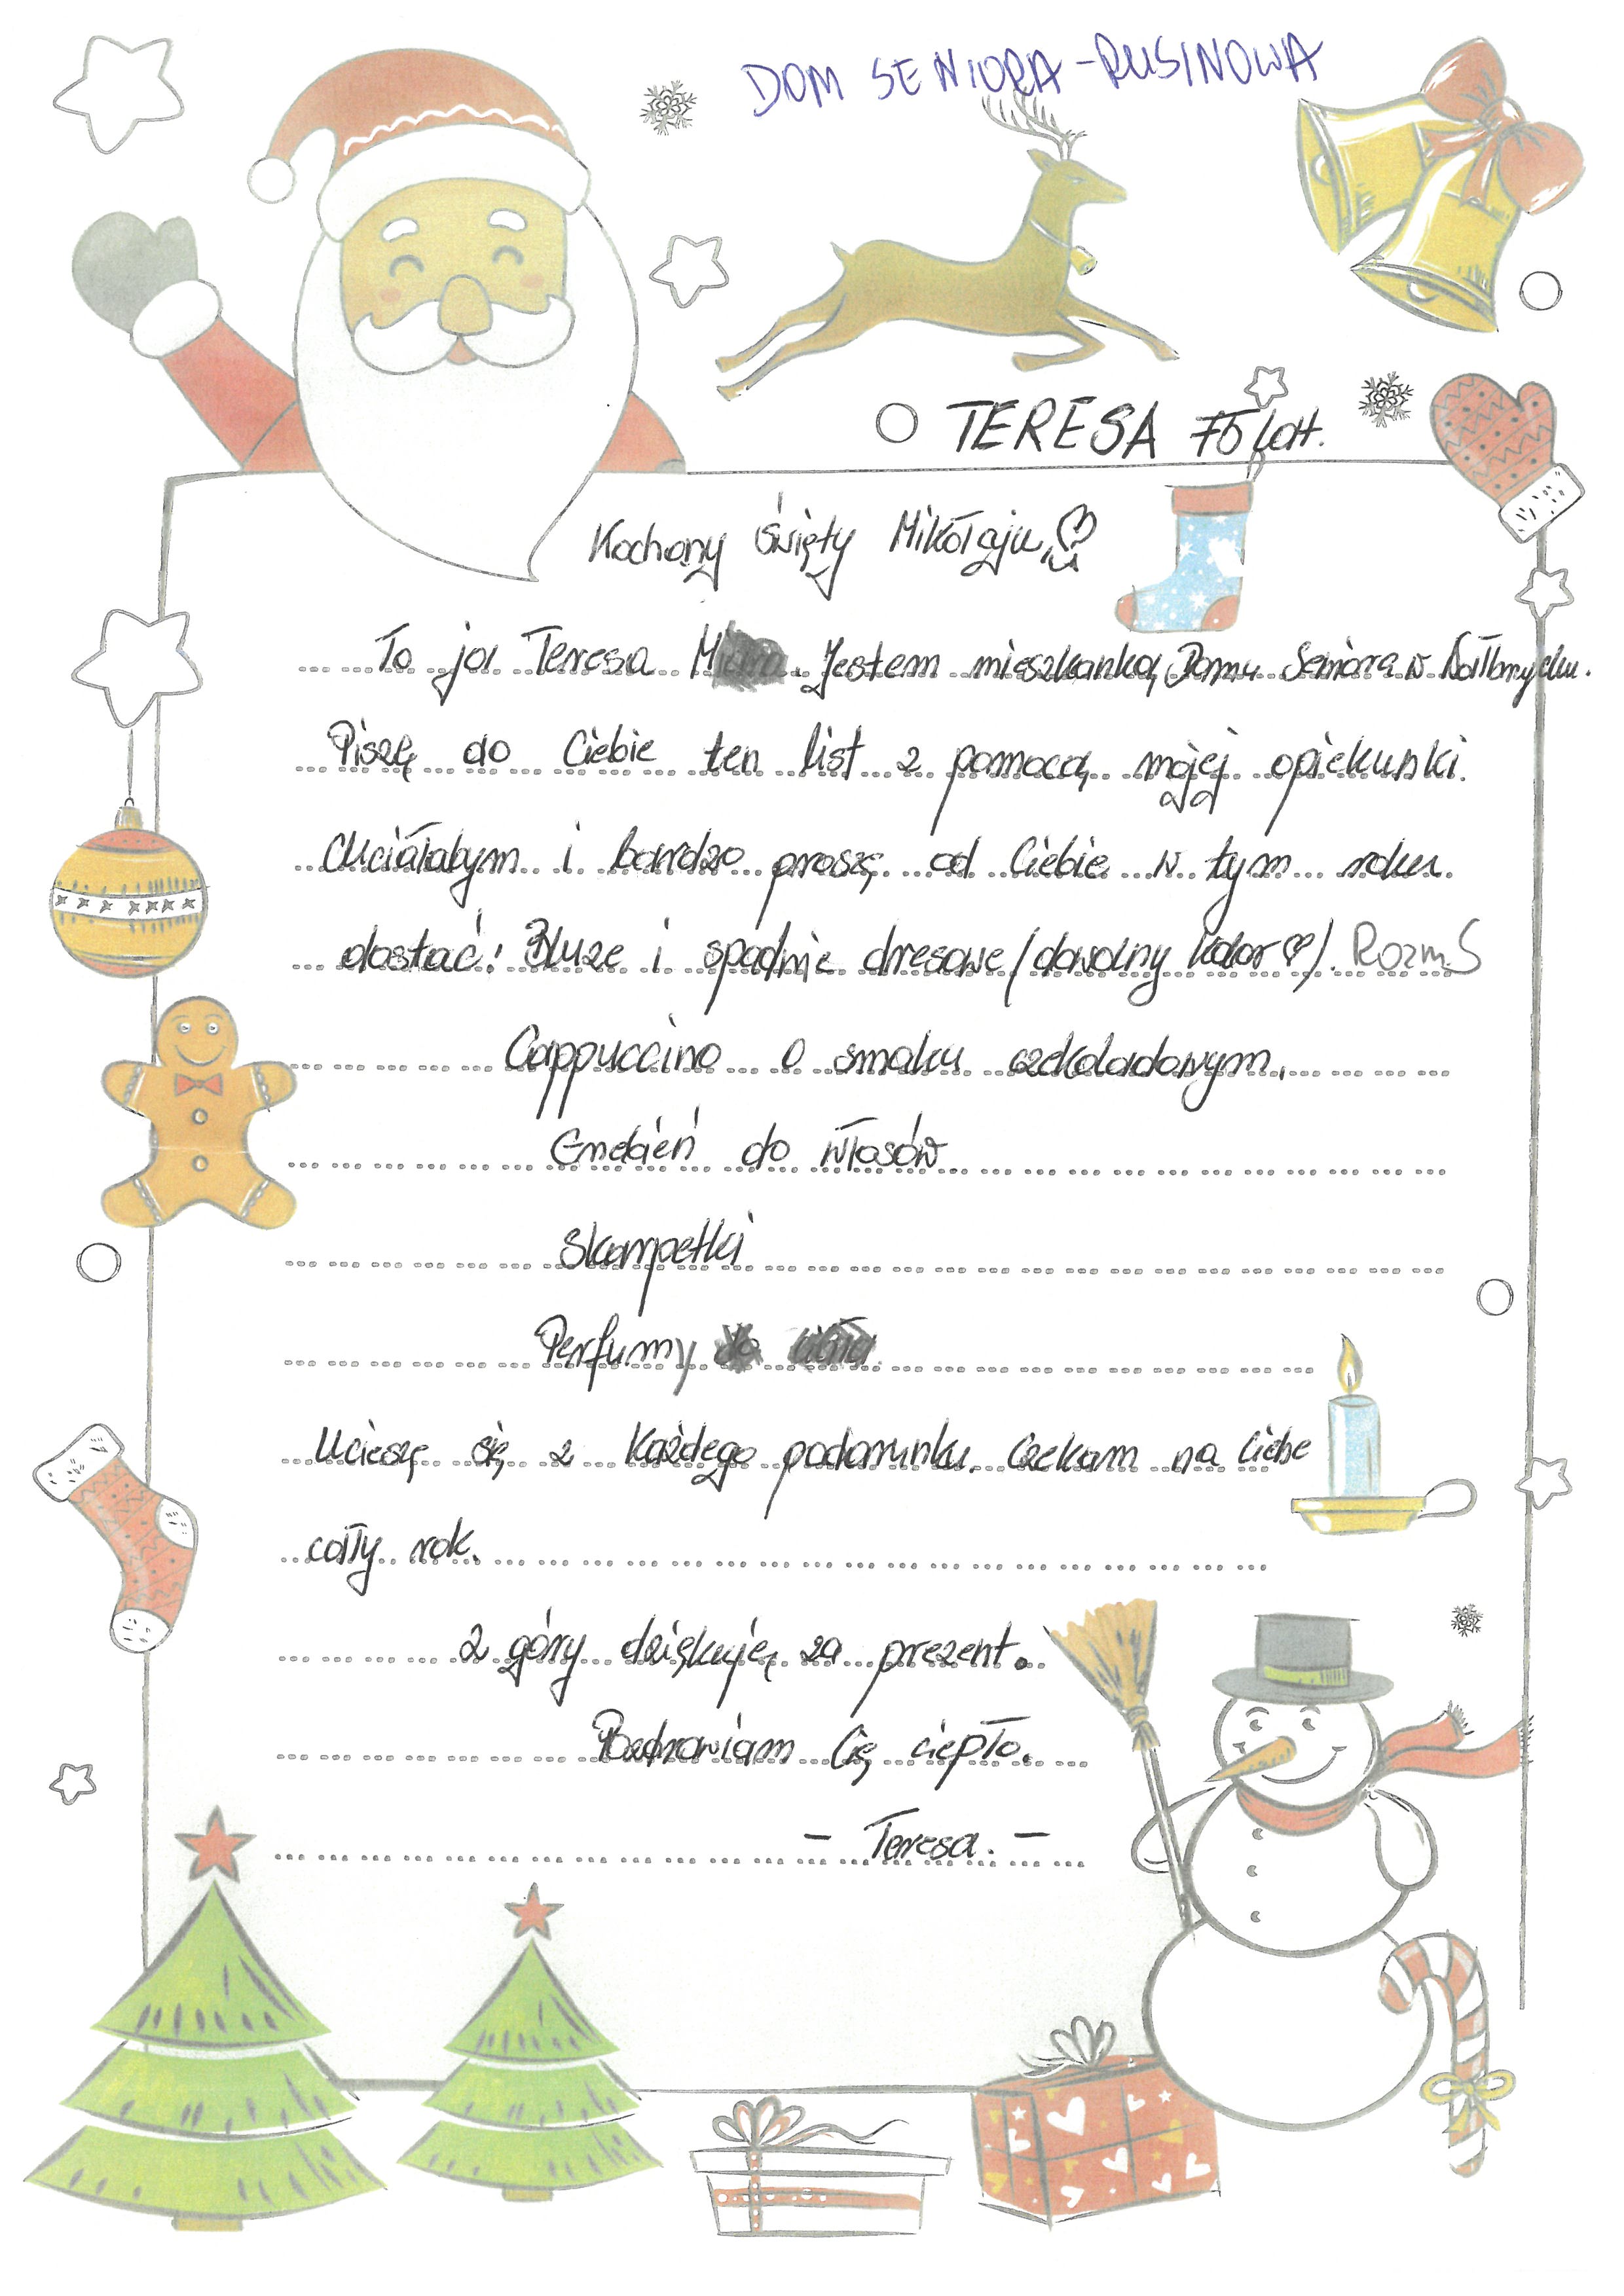 DOM SENIORA - RUSINOWA
TERESA 75 lat.
Kochany święty Mikołaju
To ja Teresa Jestem mieszkanką Domu Seniora w Wałbrzychu.
Piszę do Ciebie ten list z pomocą mojej opiekunki.
Chciałabym i bardzo proszę od Ciebie w tym roku
dostać: Bluze i spodnie dresowe /dowolny kolor ♡/. Rozm S
Cappuccino o smaku czekoladowym.
Grzebień do włosów
Skarpetki
Perfumy
Ucieszę się z każdego podarunku. Czekam na Ciebie
cały rok.
Z góry dziękuję za prezent.
Pozdrawiam Cię ciepło.
- Teresa. -